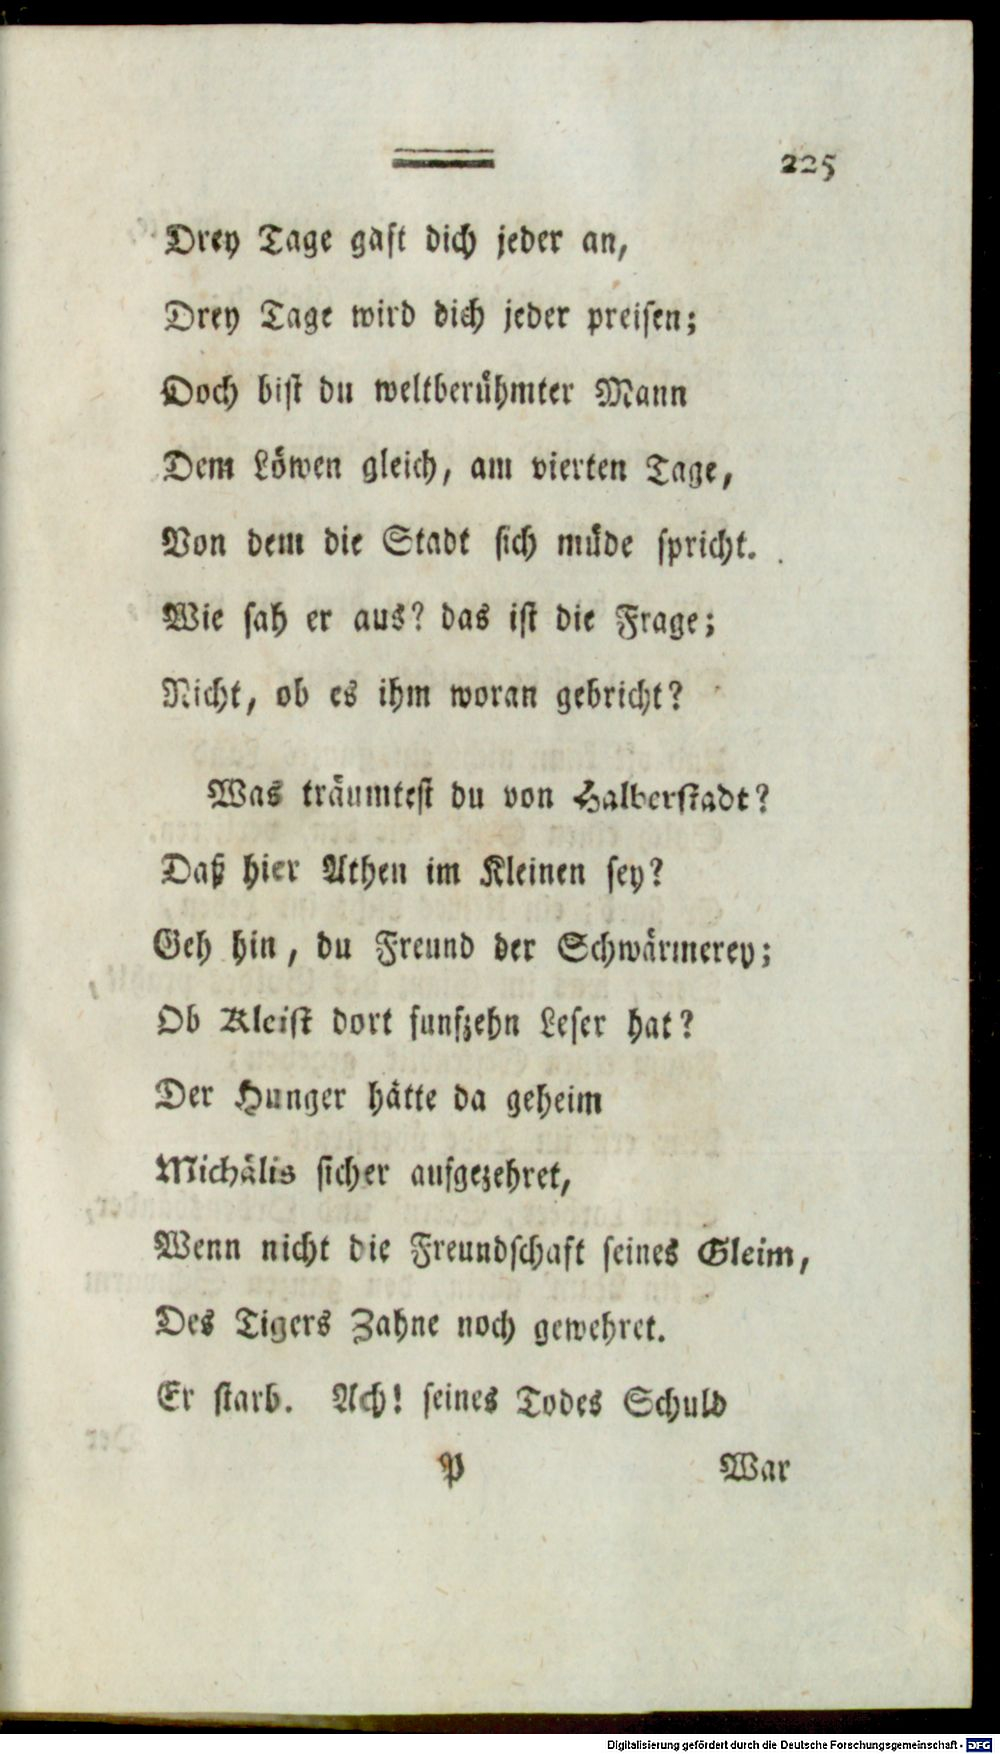 225
Drey Tage gaft dich jeder an,
Drey Tage wird dich jeder preisen;
Doch bist du weltberühmter Mann
Dem Löwen gleich, am vierten Tage,
Von dem die Stadt sich müde spricht.
Wie sah er aus? das ist die Frage;
Nicht, ob es ihm woran gebricht?
Was träumtest du von Halberstadt?
Daß hier Athen im Kleinen sey?
Geh hin, du Freund der Schwärmerey;
Ob Kleist dort funfzehn Leser hat?
Der Hunger hätte da geheim
Michälis sicher aufgezehret,
Wenn nicht die Freundschaft seines Gleim,
Des Tigers Zahne noch gewehret.
Er starb. Ach! seines Todes Schuld
P War
Digitalisierung gefördert durch die Deutsche Forschungsgemeinschaft - DFG